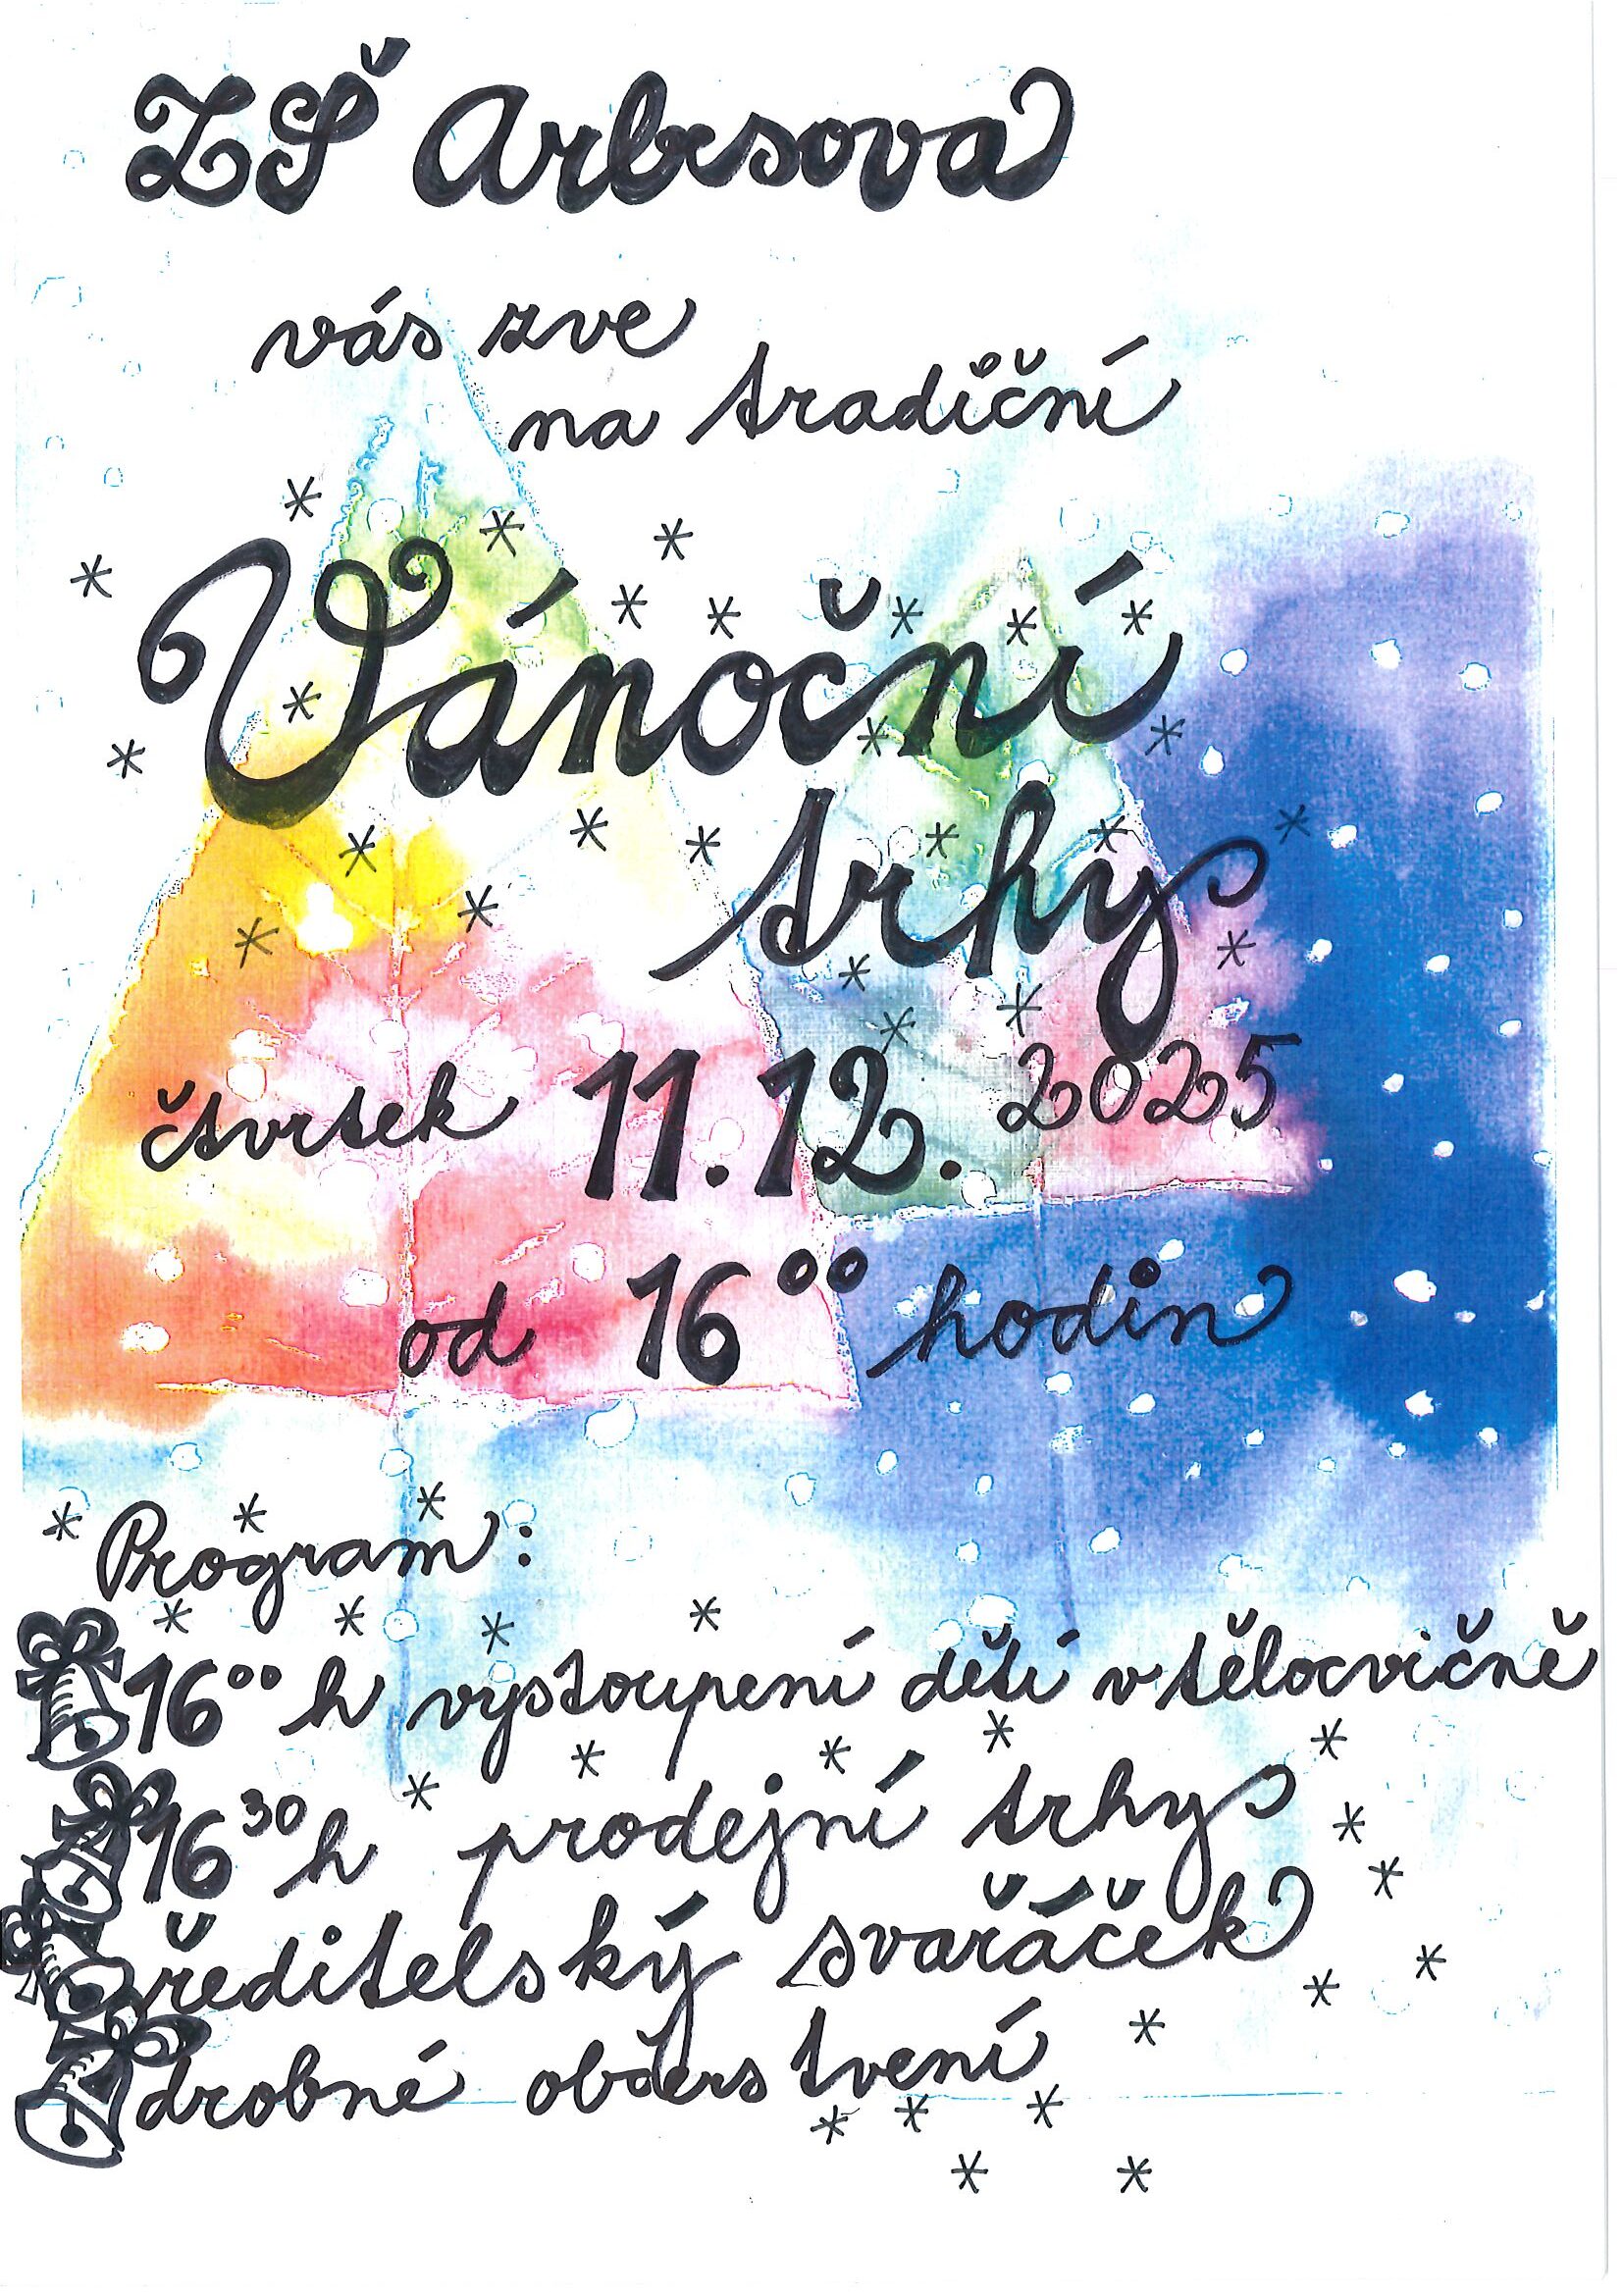 ZŠ Arbesova
vás zve
na tradiční
Vánoční
trhy
čtvrtek 11.12. 2025
od 16⁰⁰ hodin
Program:
16⁰⁰ h vystoupení dětí v tělocvičně
16³⁰ h prodejní trhy
ředitelský svařáček
drobné občerstvení